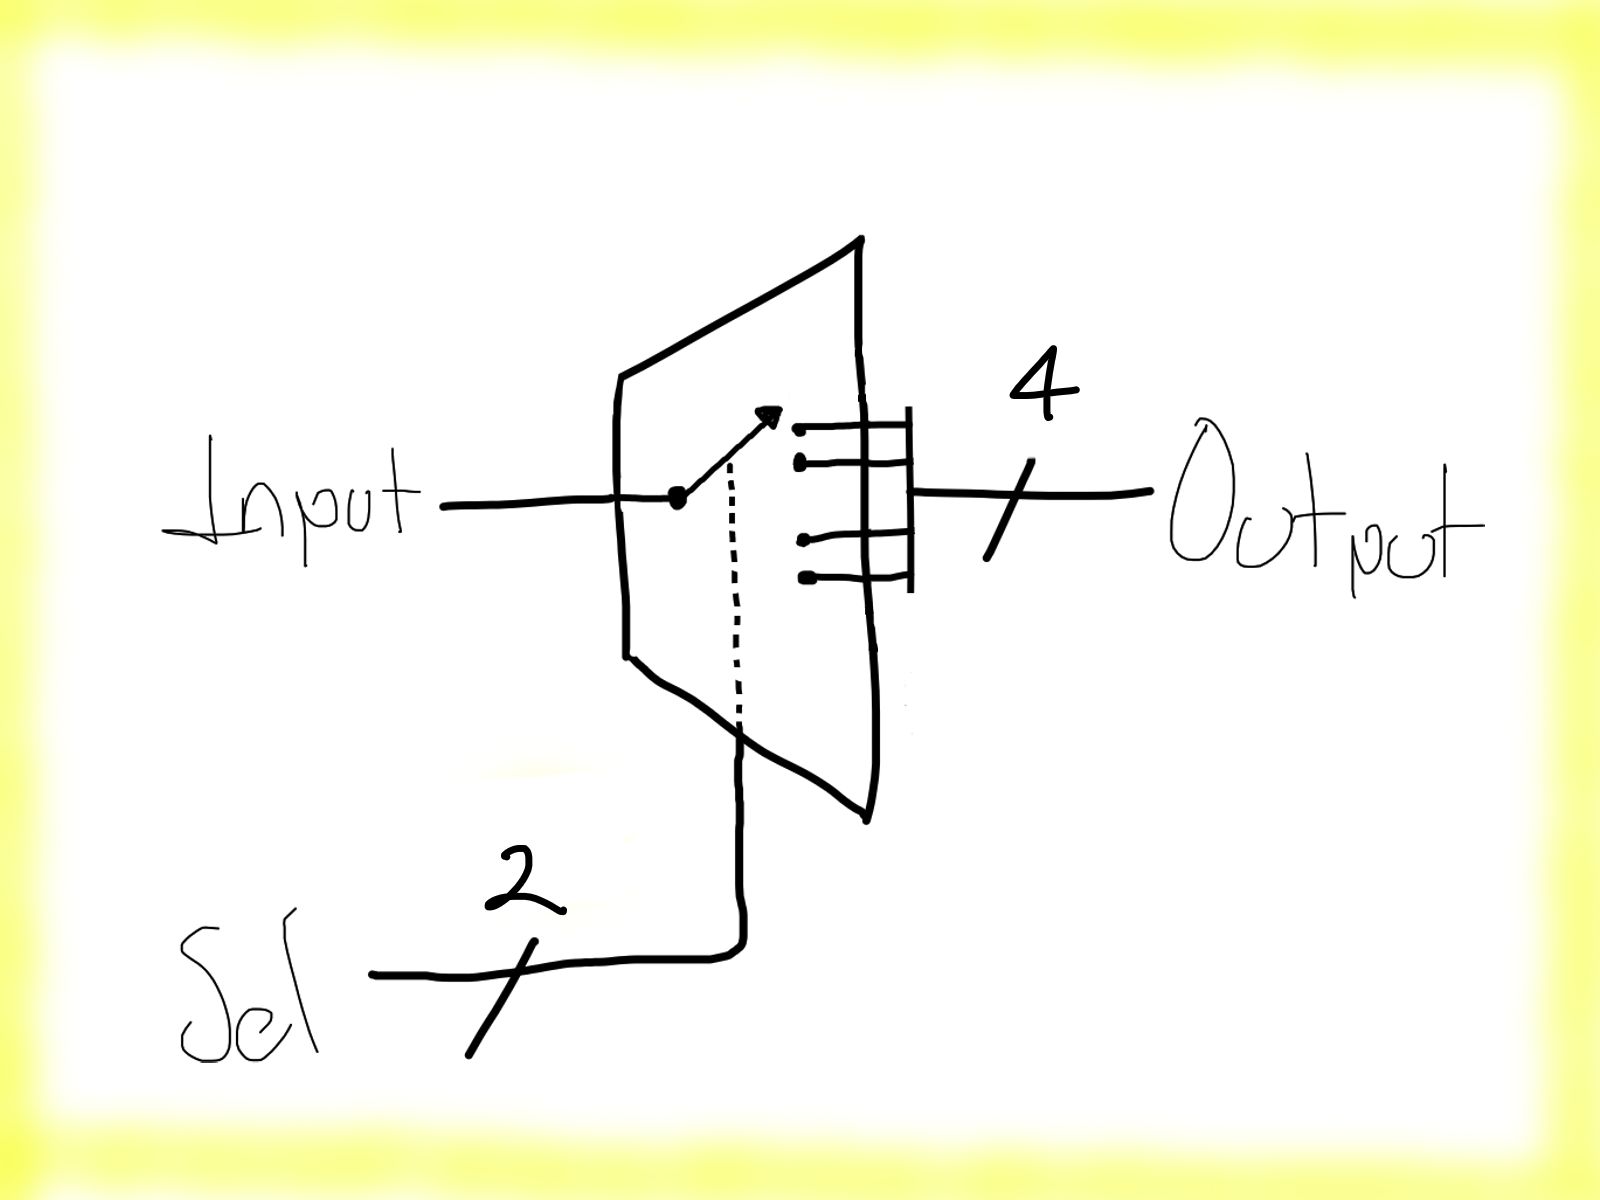 4
Input
Output
2
Sel